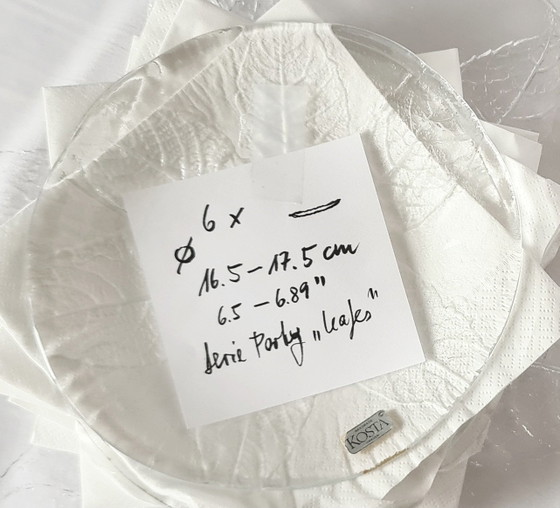 6 x
Ø 16.5-17.5 cm
6.5 - 6.89"
Serie Party „leafes"
KOSTA